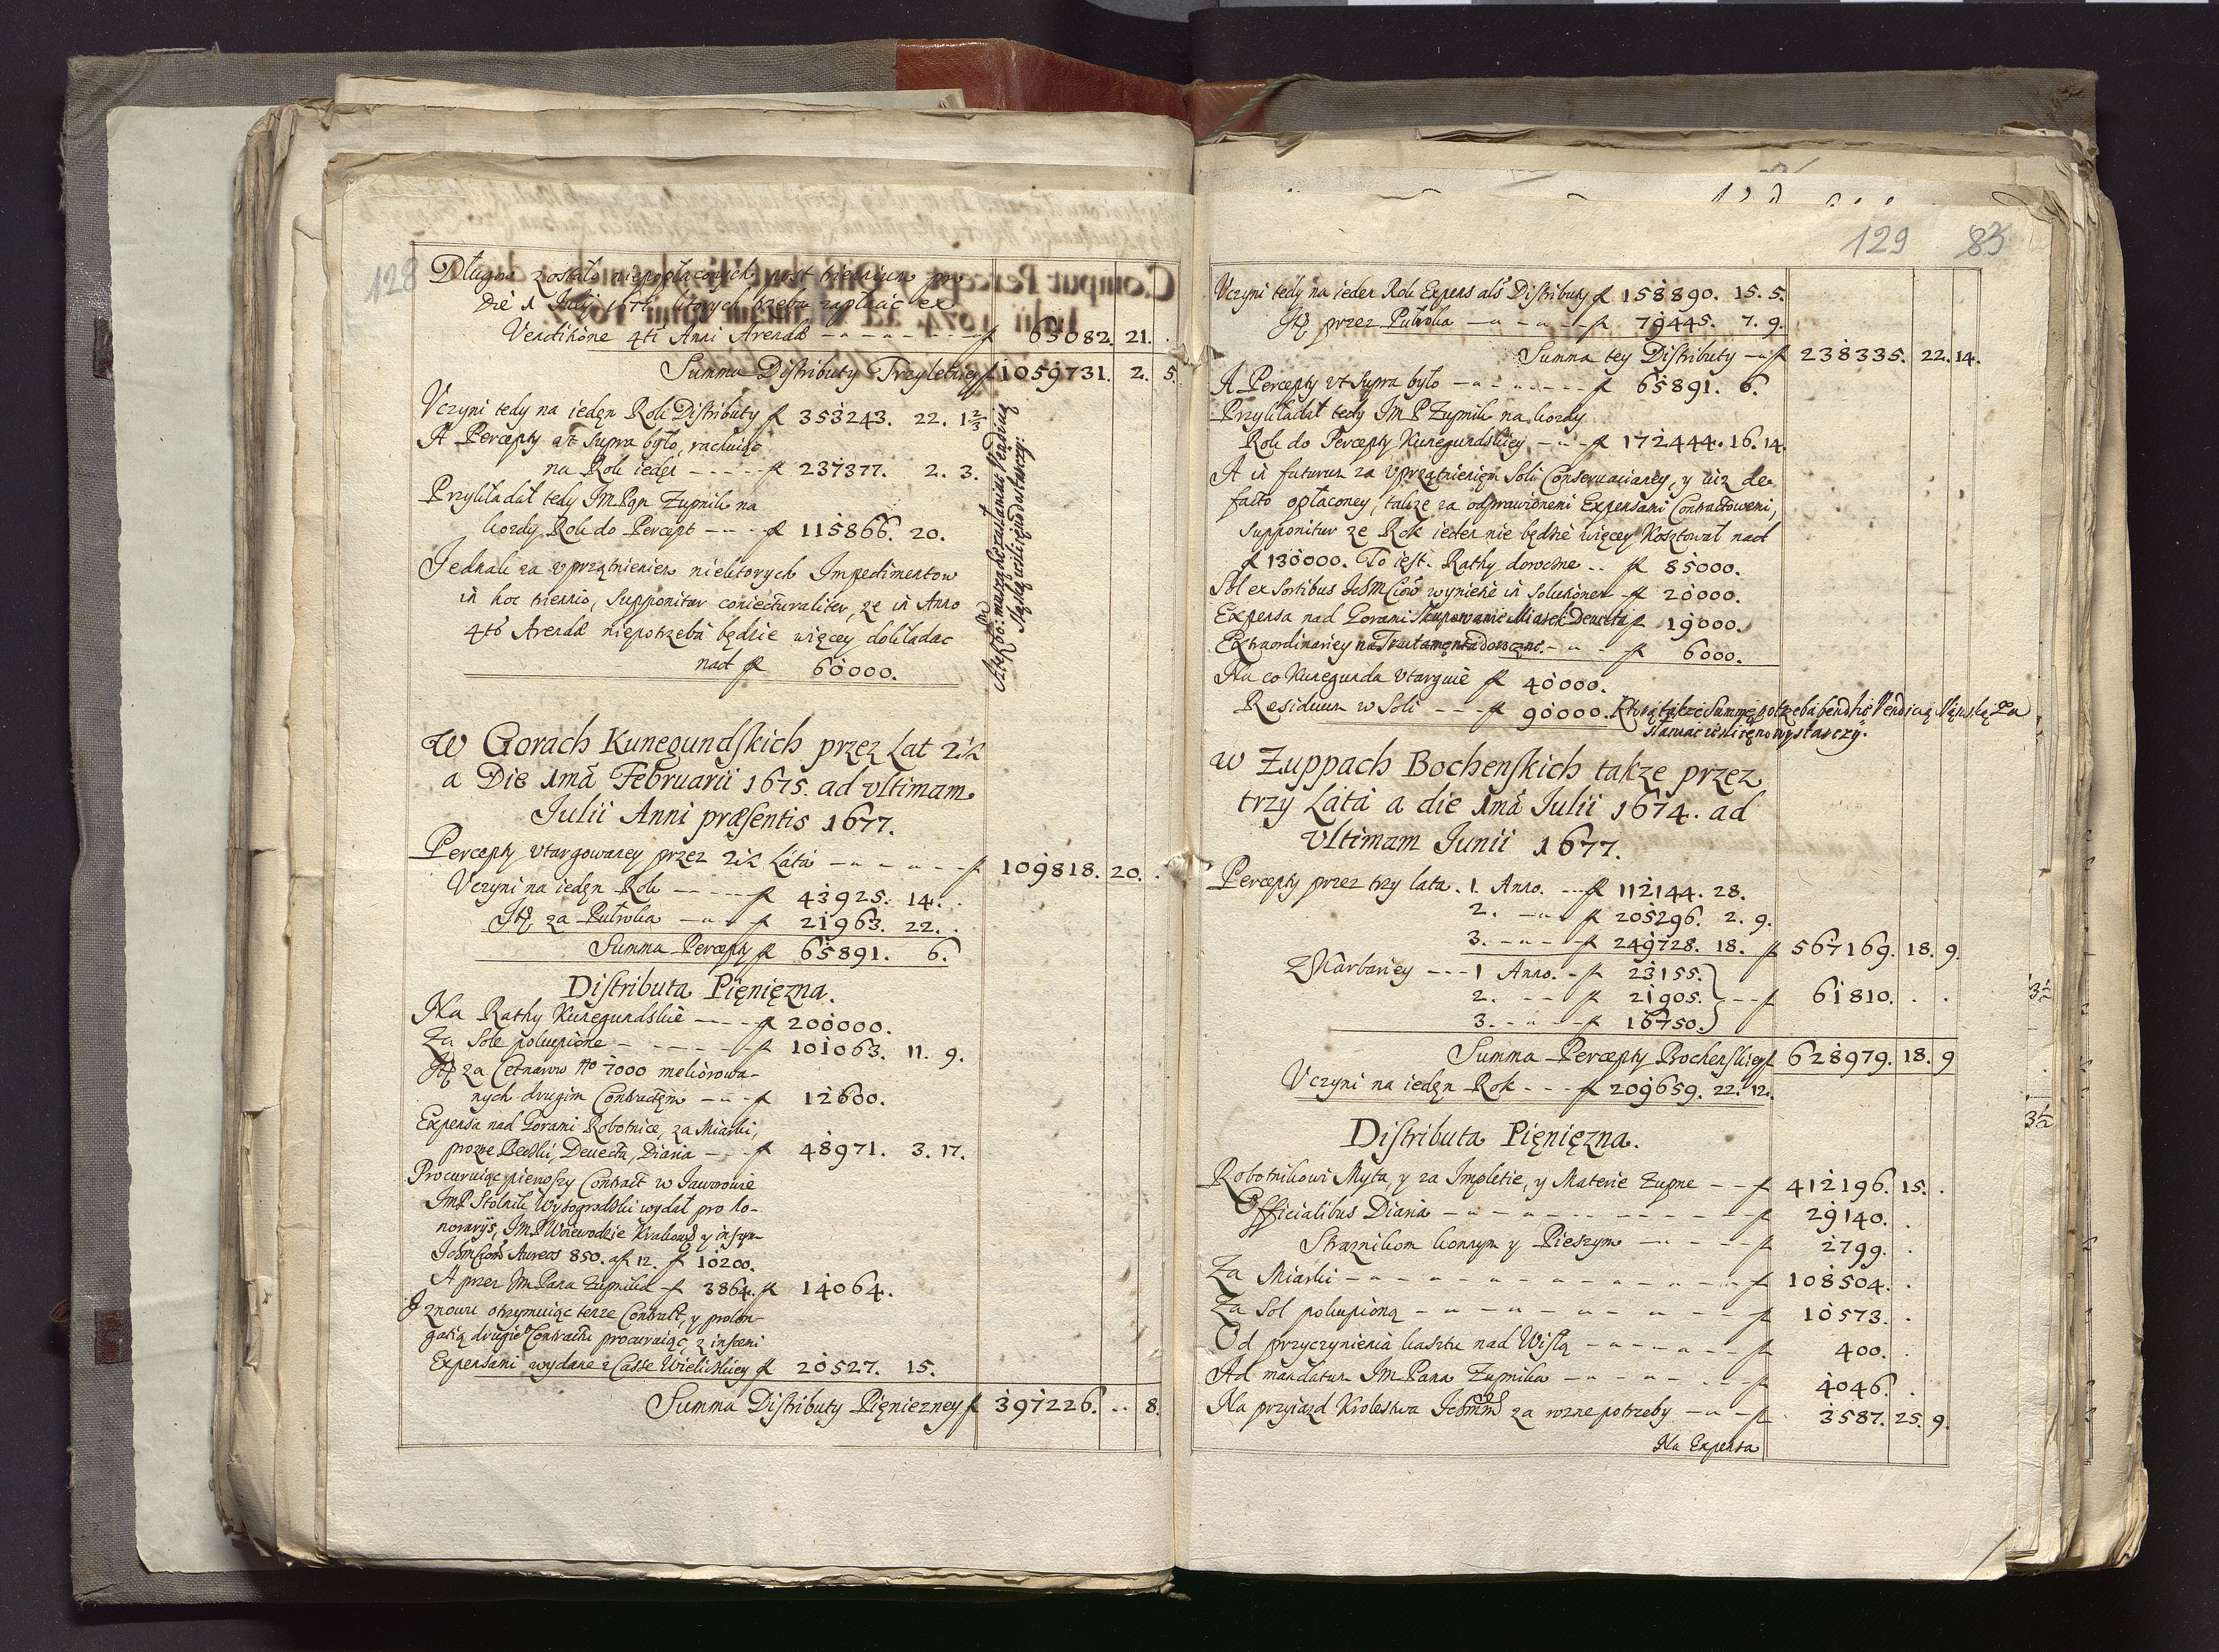 128
Długow zostało niepopłaconych post triennium pro
Die 1 Julij 1677. ktorych trzeba zapłacic ex
Venditione 4ti Anni Arendæ - - - - - fl 65082. 21.
Summa Distributy Trzyletniey fl 1059731. 2. 5.
Vczyni tedy na ieden Rok Distributy fl 353243. 22. 1 2/3
A Percepty ut supra było, rachuiąc
na Rok ieden - - - - fl 237377. 2. 3.
Przykładał tedy Im Pan Zupnik na
kozdy Rok do Percept - - - fl 115866. 20.
Jednak za vprzątnieniem niektorych Impedimentow
in hoc triennio, supponitur coniecturaliter, ze in Anno
4to Arendæ niepotrzeba będzie więcey dokładac
nad fl 60000.
W Gorach Kunegundskich przez Lat 2½
a Die 1mâ Februarii 1675. ad vltimam
Julii Anni præsentis 1677.
Percepty vtargowaney przez 2½ Lata - - - - fl 109818. 20.
Vczyni na ieden Rok - - - - fl 43925. 14.
Itp za Pułroka - - - fl 21963. 22.
Summa Percepty fl 65891. 6.
Distributa Pięniężna.
Na Rathy Kunegundskie - - - fl 200000.
Za Sole pokupione - - - - - fl 101063. 11. 9.
Itp za Cetnarow No 7000 meliorowa-
nych drugim Contractem - - - fl 12600.
Expensa nad Gorami Robotnice, za Miarki,
prozne Beczki, Deuecta, Diaria - - fl 48971. 3. 17.
Procuruiąc pierwszy Contract w Jaworowie
ImP Stolnik Wyszogrodzki wydał pro ho-
norarijs, ImP Woiewodzie Krakowskiemu y inszym
Ichmciom Aureos 850. a fl 12. fl 10200.
A przez Im Pana Zupnika - fl 3864. fl 14064.
I znowu otrzymuiąc tenze Contract, y prolon-
gatią drugiego Contractu procuruiąc, z inszemi
Expensami wydane z Casse Wielickiey fl 20527. 15.
Summa Distributy Pięnięzney fl 397226. .. 8.
129 83
Vczyni tedy na ieden Rok Expens als Distributy fl 158890. 15. 5.
Itp przez Pułroka - - - - fl 79445. 7. 9.
Summa tey Distributy - fl 238335. 22. 14.
A Percepty vt supra było - - - - - fl 65891. 6.
Przykładał tedy Im P Zupnik na kozdy
Rok do Percepty Kunegundskiey - - - fl 172444. 16. 14.
A in futurum za vprzątnieniem Soli Conseruacianey, y iuz de
facto opłaconey, takze za odprawionemi Expensami Contractowemi,
supponitur ze Rok ieden nie będzie więcey kosztował nad
fl 130000. To iest. Rathy doroczne .. fl 85000.
Sol ex Sortibus IchMciow wyniesie in solutionem - fl 20000.
Expensa nad Gorami Skupowanie Miarek Deuecta fl 19000.
Extraordinariey na Tractamenta doroczne. - - - fl 6000.
Na co Kunegunda vtarguie fl 40000.
Residuum w Soli - - - fl 90000. Ktorą takze Summę potrzeba bendzie Vendicią Sląską za
stawiac iesli ięno wystarczy.
w Zuppach Bochenskich takze przez
trzy Lata a die 1mâ Julii 1674. ad
vltimam Junii 1677.
Percepty przez trzy lata. 1. Anno. - - fl 112144. 28.
2. - - - fl 205296. 2. 9.
3. - - - fl 249728. 18. fl 567169. 18. 9.
z Skarbariey - - - 1 Anno. - fl 23155.
2. - - fl 21905. - - fl 61810. . .
3. - - - fl 16750.
Summa Percepty Bochenskiey fl 628979. 18. 9
Vczyni na ieden Rok - - - fl 209659. 22. 12.
Distributa Pięniężna.
Robotnikowi Myta, y za Impletie, y Materie Zupne - - fl 412196. 15. .
Officialibus Diaria - - - - - - - - fl 29140. .
Straznikom konnym y Pieszym - - - - fl 2799. .
Za Miarki - - - - - - - - - - - fl 108504. .
Za Sol pokupioną - - - - - - - - - fl 10573. .
Od przyczynienia kasztu nad Wisłą - - - - - fl 400. .
Ad mandatum Im Pana Zupnika - - - - - fl 4046. .
Na przyiazd Krolestwa Ichmciow za rozne potrzeby - - fl 3587. 25. 9.
Na Expensa